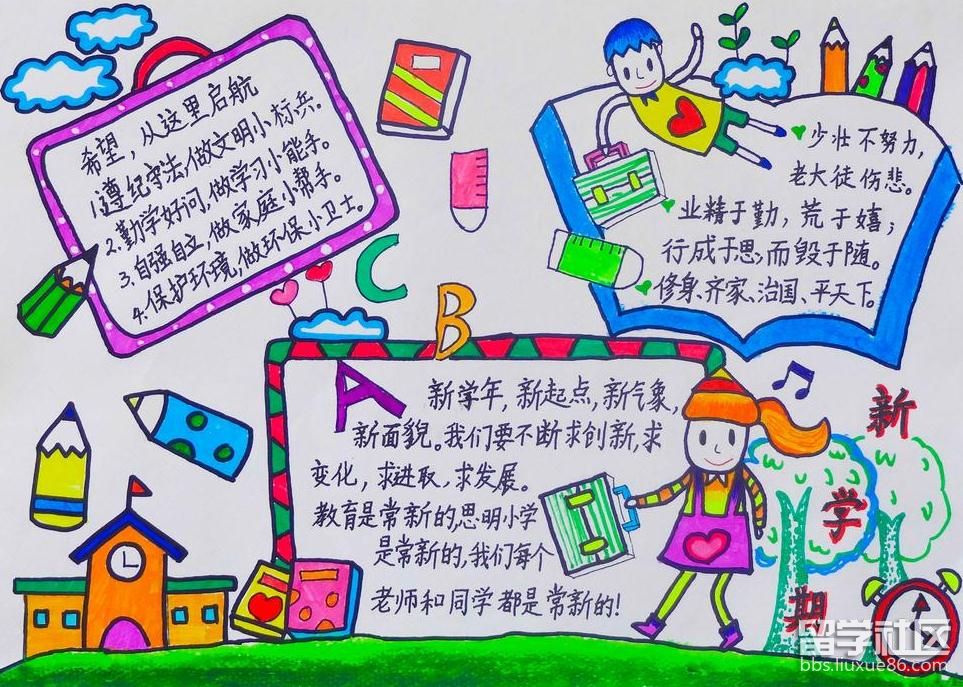 希望，从这里启航
1.遵纪守法，做文明小标兵。
2.勤学好问，做学习小能手。
3.自强自立，做家庭小帮手。
4.保护环境，做环保小卫士。
少壮不努力，
老大徒伤悲。
业精于勤，荒于嬉；
行成于思，而毁于随。
修身、齐家、治国、平天下。
C
B
A
新学年，新起点，新气象，
新面貌。我们要不断求创新，求
变化，求进取，求发展。
教育是常新的，思明小学
是常新的，我们每个
老师和同学都是常新的！
新
学
期
留学社区
bbs.liuxue86.com